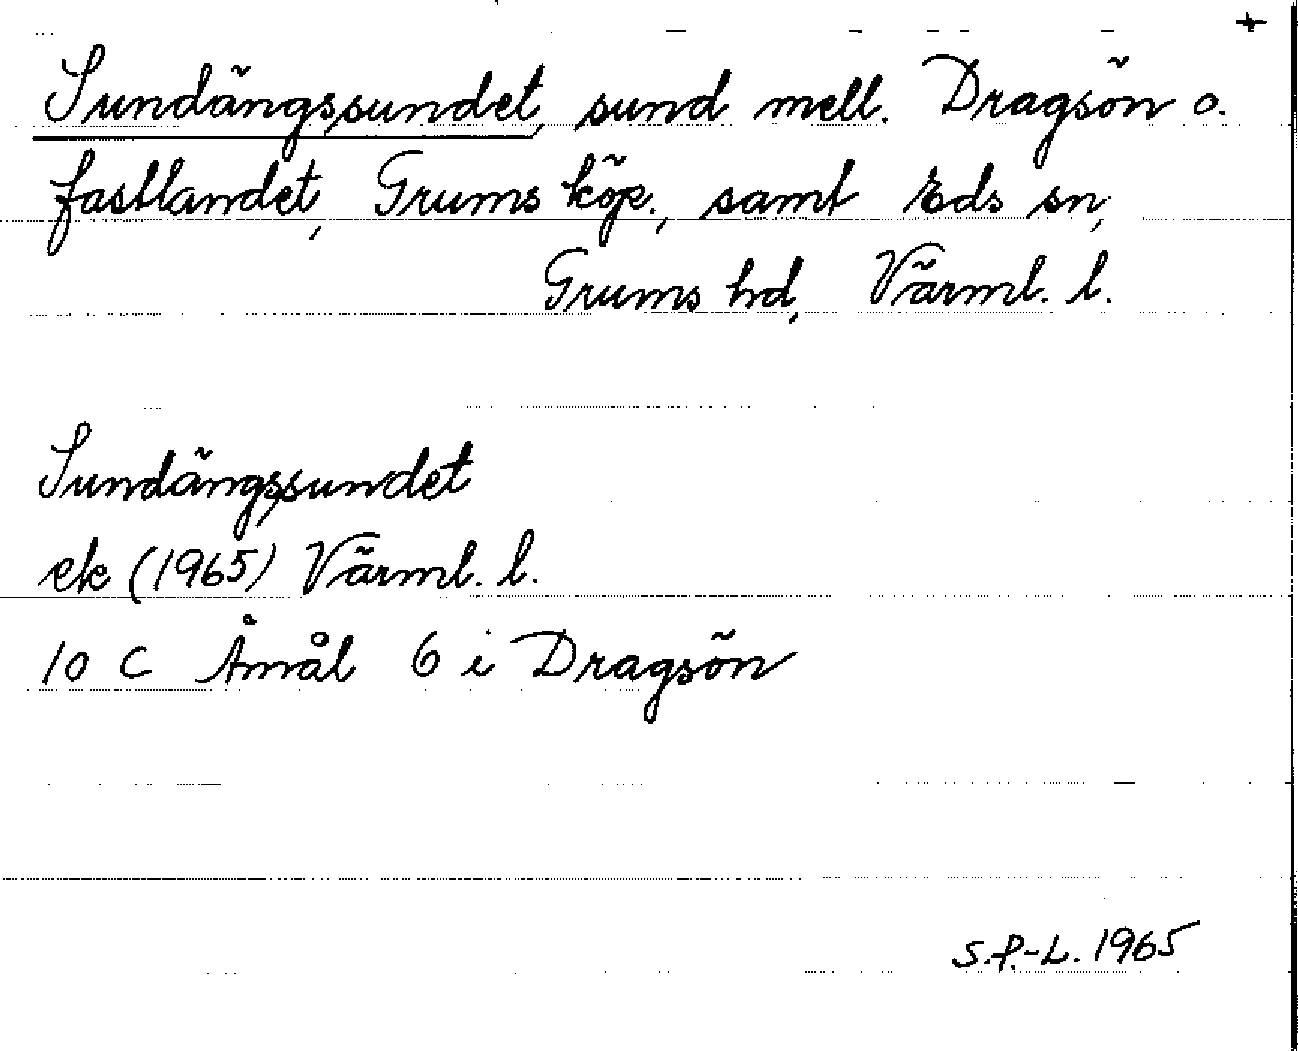 +
Sundängssundet, sund mell. Dragsön o.
fastlandet, Grums köp., samt Eds sn,
Grums hd, Värml. l.
Sundängssundet
ek (1965) Värml. l.
10 C Åmål 6 i Dragsön
S.P.-L. 1965